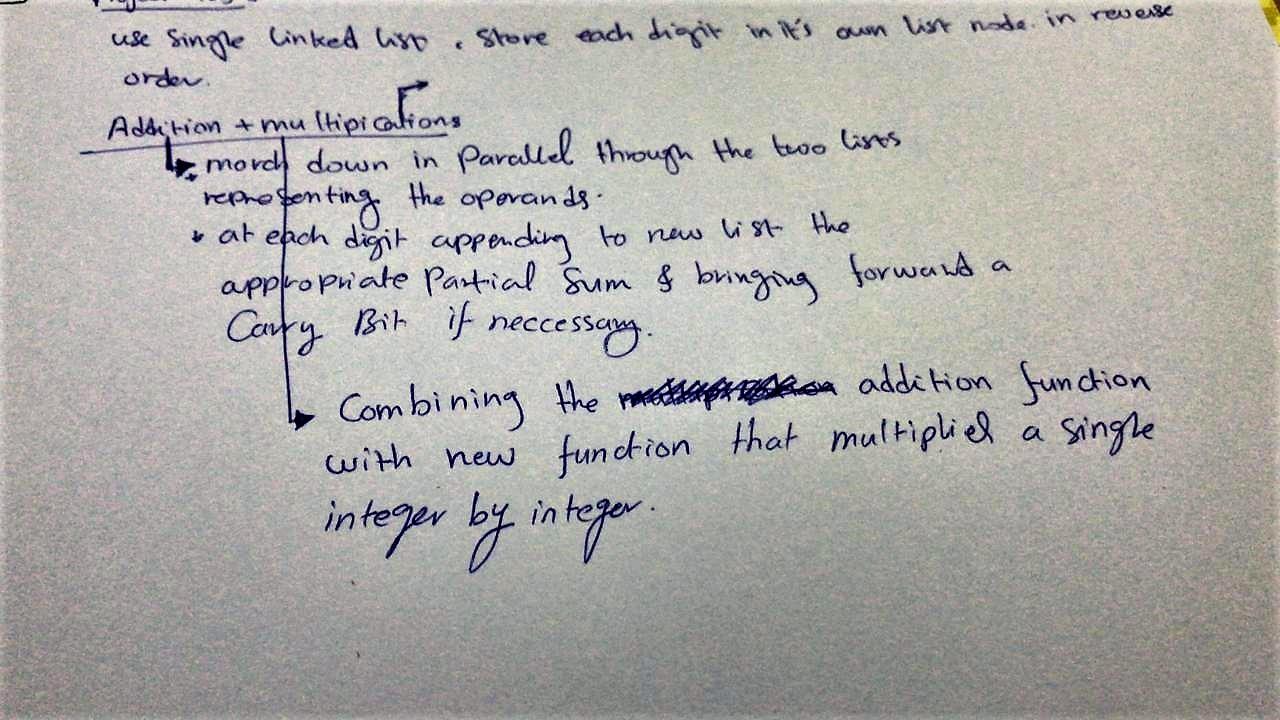 use single linked list. Store each digit in it's own list node. in reverse
order.
Addition + multipications
march down in parallel through the two lists
representing the operands.
* at each digit appending to new list the
appropriate Partial Sum & bringing forward a
Carry Bit if neccessary.
Combining the addition function
with new function that multiplies a single
integer by integer.